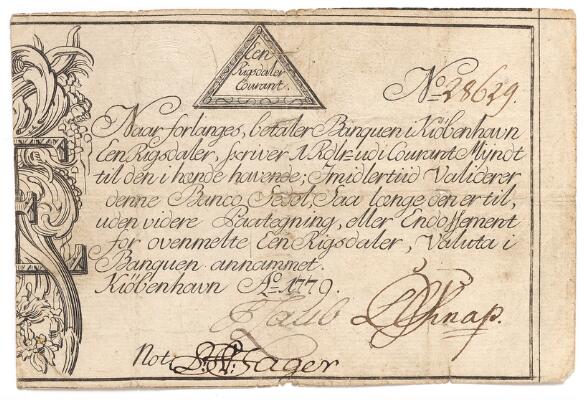 Een
Rigsdaler
Courant.
No 28629.
Naar forlanges, betaler Banquen i Kiöbenhavn
Een Rigsdaler, skriver 1 Rdlr. udi Courant Myndt
til den i hænde havende; Imidlertiid Validerer
denne Banco Sedel, Saa længe den er til,
uden videre Paategning, eller Endossement
for ovenmelte Een Rigsdaler, Valuta i
Banquen annammet.
Kiöbenhavn Ao. 1779.
Knap.
Not: